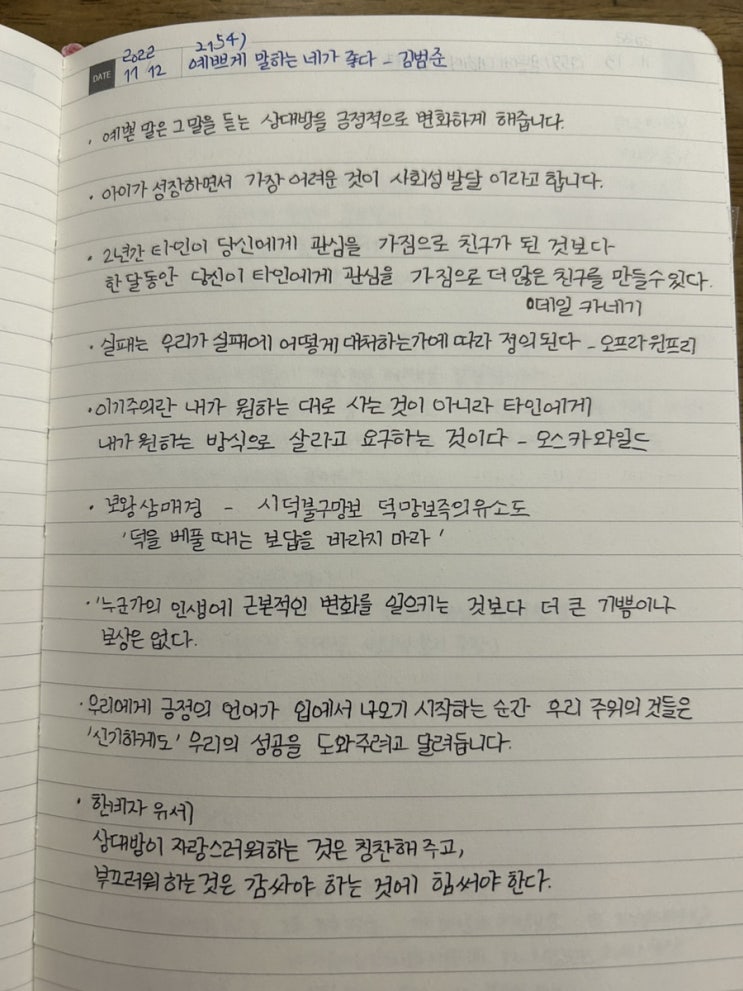 DATE 2022 11 12
2154) 예쁘게 말하는 네가 좋다 - 김범준
· 예쁜 말은 그 말을 듣는 상대방을 긍정적으로 변화하게 해줍니다.
· 아이가 성장하면서 가장 어려운 것이 사회성 발달 이라고 합니다.
· 2년간 타인이 당신에게 관심을 가짐으로 친구가 된 것보다
한달동안 당신이 타인에게 관심을 가짐으로 더 많은 친구를 만들수있다.
데일 카네기
· 실패는 우리가 실패에 어떻게 대처하는가에 따라 정의된다 - 오프라 윈프리
· 이기주의란 내가 원하는 대로 사는 것이 아니라 타인에게
내가 원하는 방식으로 살라고 요구하는 것이다 - 오스카 와일드
· 보왕삼매경 - 시덕불구망보 덕망보즉의유소도
'덕을 베풀 때는 보답을 바라지 마라'
· '누군가의 인생에 근본적인 변화를 일으키는 것보다 더 큰 기쁨이나
보상은 없다.
· 우리에게 긍정의 언어가 입에서 나오기 시작하는 순간 우리 주위의 것들은
'신기하게도' 우리의 성공을 도와주려고 달려듭니다.
· 한비자 유세
상대방이 자랑스러워하는 것은 칭찬해 주고,
부끄러워 하는것은 감싸야 하는 것에 힘써야 한다.